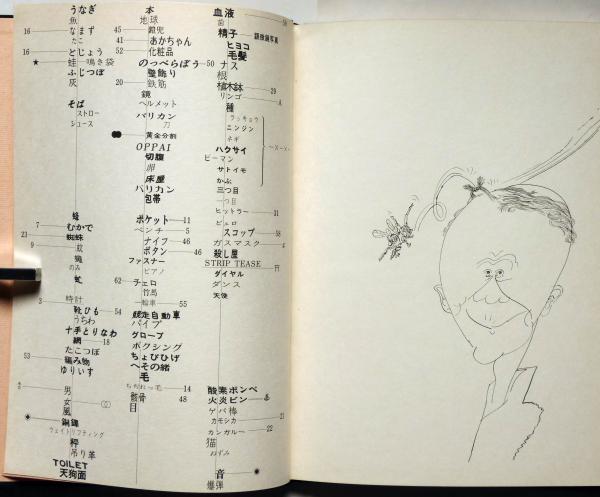 うなぎ
魚
16 なまず
たこ
16 どじょう
★ 蛙 鳴き袋
ふじつぼ
灰
そば
ストロー
ジュース
蜂
7 むかで
23 蜘蛛
9 蚊
蝿
のみ
蛇
3 時計
靴ひも 54
うちわ
十手とりなわ
網 18
たこつぼ
53 編み物
ゆりいす
男
女
風
銅鑼
ウェイトリフティング
秤
吊り革
TOILET
天狗面
本
地球
45 鎧児
41 あかちゃん
52 化粧品
のっぺらぼう 50
壁飾り
20 鉄筋
鏡
ヘルメット
バリカン
刀
黄金分割
OPPAI
切腹
卵
床屋
バリカン
包帯
ポケット 11
ペンチ 5
ナイフ 46
ボタン 46
ファスナー
ピアノ
62 チェロ
竹馬
一輪車 55
競走自動車
パイプ
グローブ
ボクシング
ちょびひげ
へその緒
毛
ちぢれっ毛 14
骸骨 48
目
血液
歯
精子 顕微鏡写真
ヒヨコ
毛髪
ナス
根
植木鉢 29
リンゴ A
種
ラッキョウ
ニンジン
ネギ
ハクサイ
ピーマン
サトイモ
かぶ
三つ目
一つ目
ヒットラー 31
ピエロ
スコップ 58
ガスマスク 4
殺し屋
STRIP TEASE 円
ダイヤル
ダンス
天使
酸素ボンベ
火炎ビン
ゲバ棒
カモシカ 21
カンガルー 22
猫
ねずみ
音
爆弾